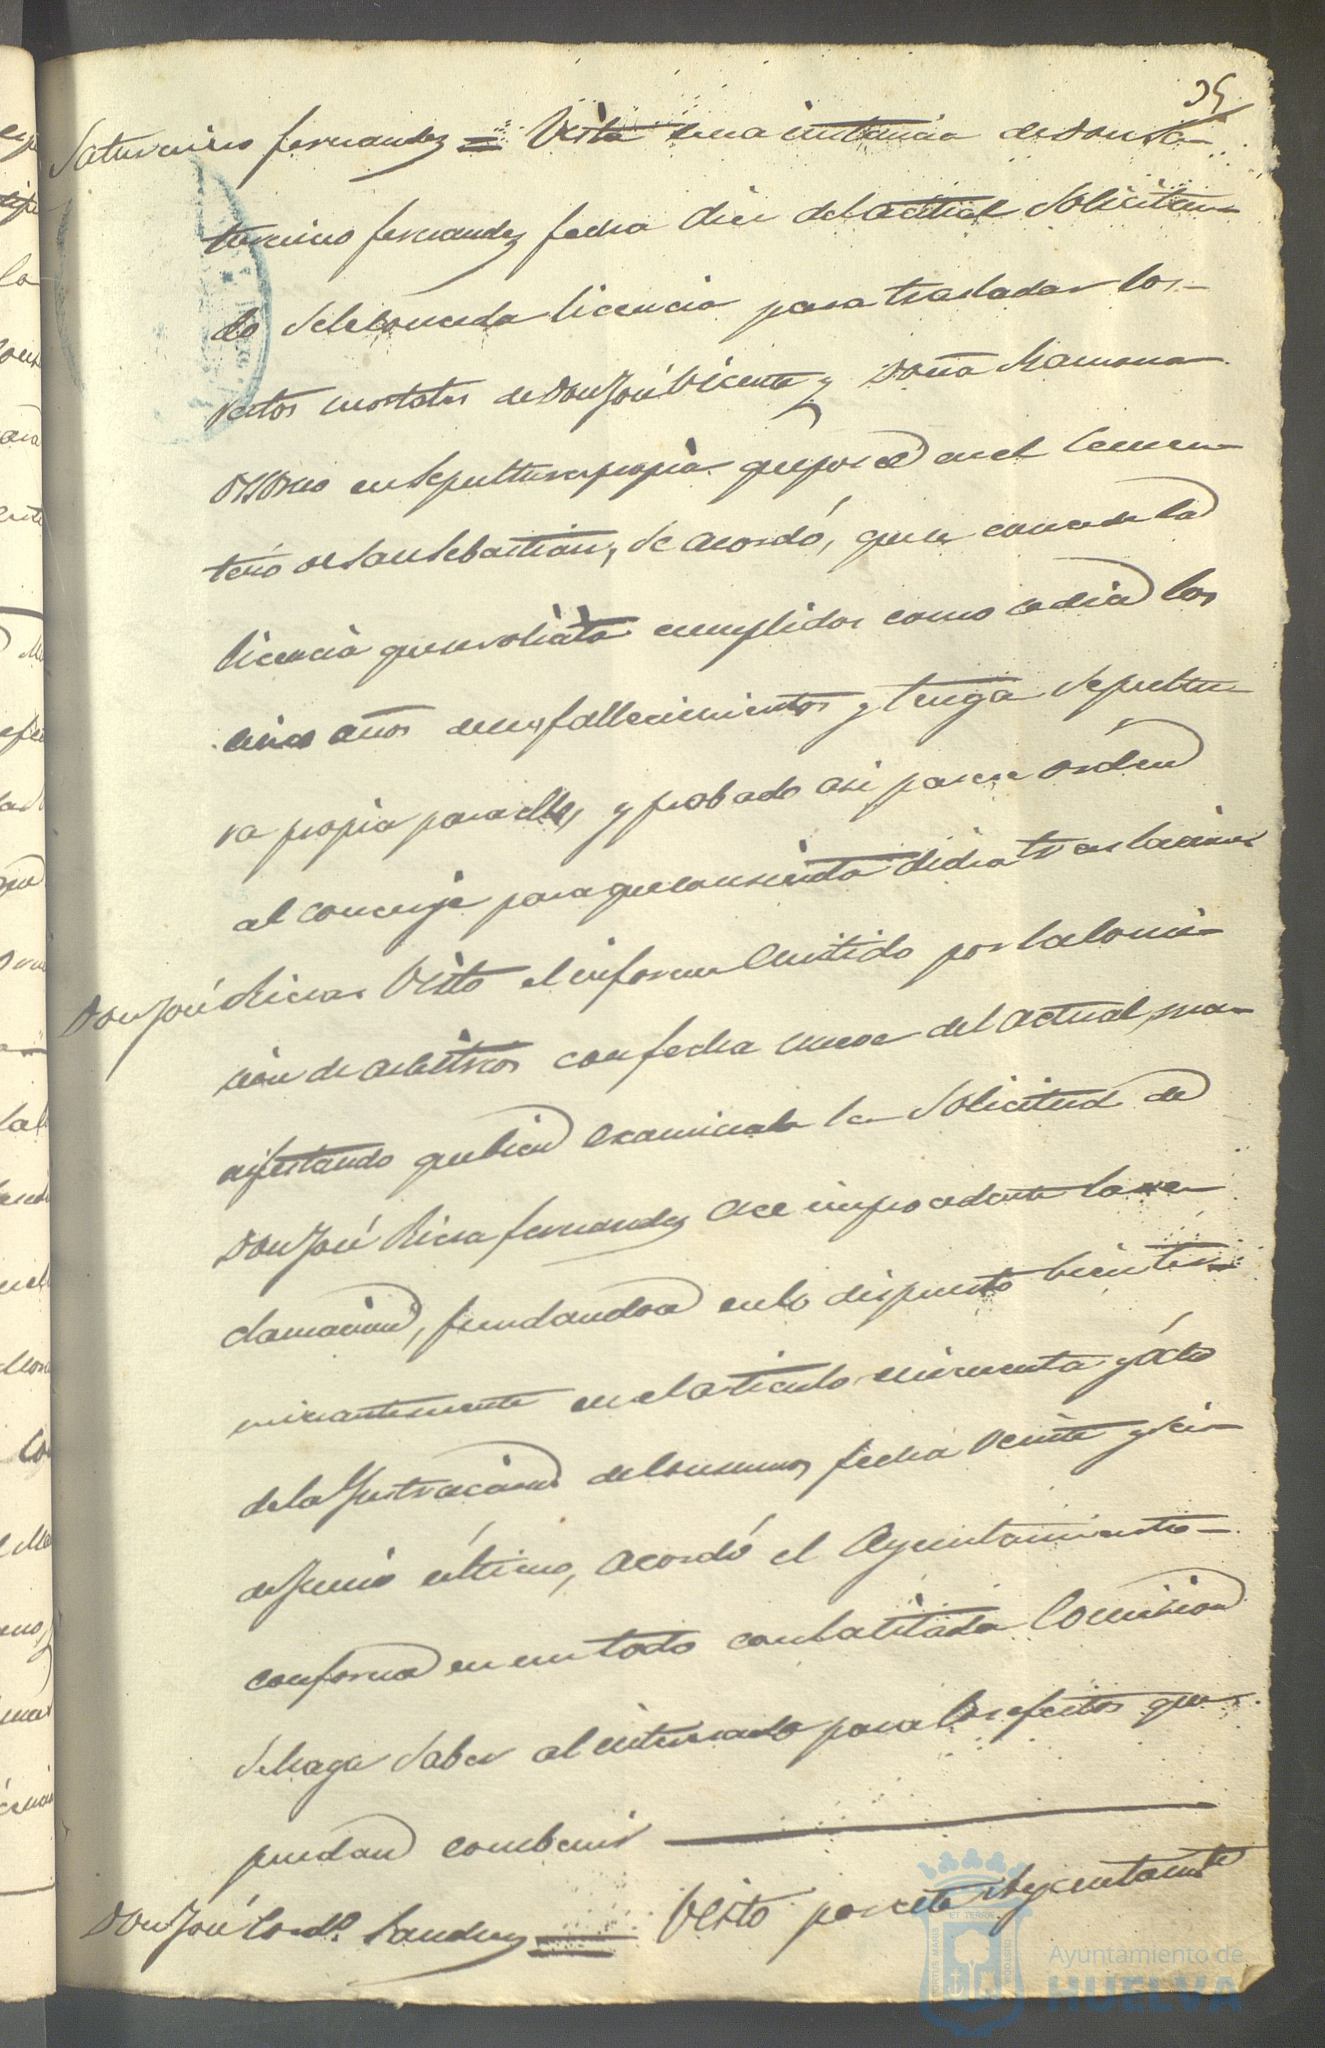 35
Saturnino Fernandez = Vista una instancia de Don Sa-
turnino Fernandez fecha diez del actual solicitan-
do se le conceda licencia para trasladar los
restos mortales de Don José Vicente y Doña Ramona
Osorno en sepultura propia que posee en el Cemen-
terio de San Sebastian, se acordó, que se conceda la
licencia que se solicita cumplidos como sedia los
cinco años de sus fallecimientos y tenga sepultu-
ra propia para ello, y probado asi pasese orden
al conserje para que consienta dicha traslacion
Don José Riera Visto el informe emitido por la Comi-
sion de arbitrios con fecha nueve del actual, ma-
nifestando que bien examinada la solicitud de
Don José Riera Fernandez cree improcedente la re-
clamacion, fundandose en lo dispuesto bien ter-
minantemente en el articulo cincuenta y ócho
de la Ynstruccion de Consumos, fecha veinte y seis
de Junio último, acordó el Ayuntamiento
conforme en un todo con la citada Comision
se haga saber al interesado para los efectos que
puedan combenir
Don José Cord.º Sanchez = Visto por este Ayuntamto
PORTUS MARIS ET TERRAE CUSTODIA
Ayuntamiento de
HUELVA